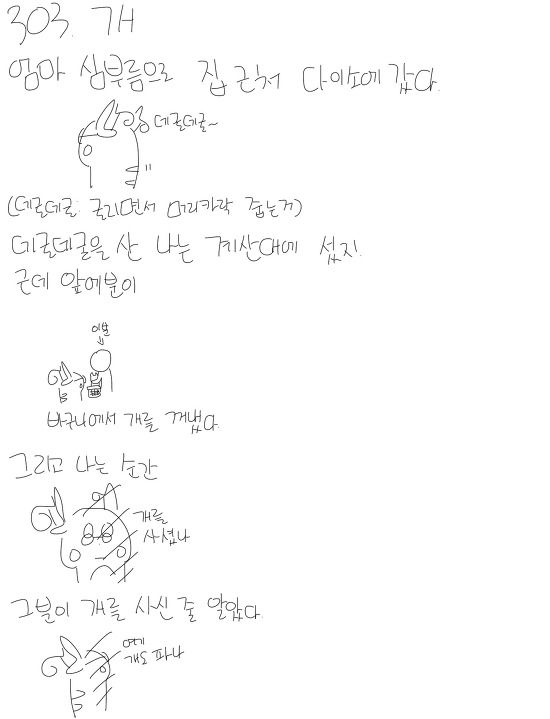 303. 개
엄마 심부름으로 집 근처 다이소에 갔다.
데굴데굴~
(데굴데굴: 굴리면서 머리카락 줍는거)
데굴데굴을 산 나는 계산대에 섰지.
근데 앞에분이
이분
바구니에서 개를 꺼냈다.
그리고 나는 순간
개를
사셨나
그분이 개를 사신 줄 알았다.
여기
개도 파나